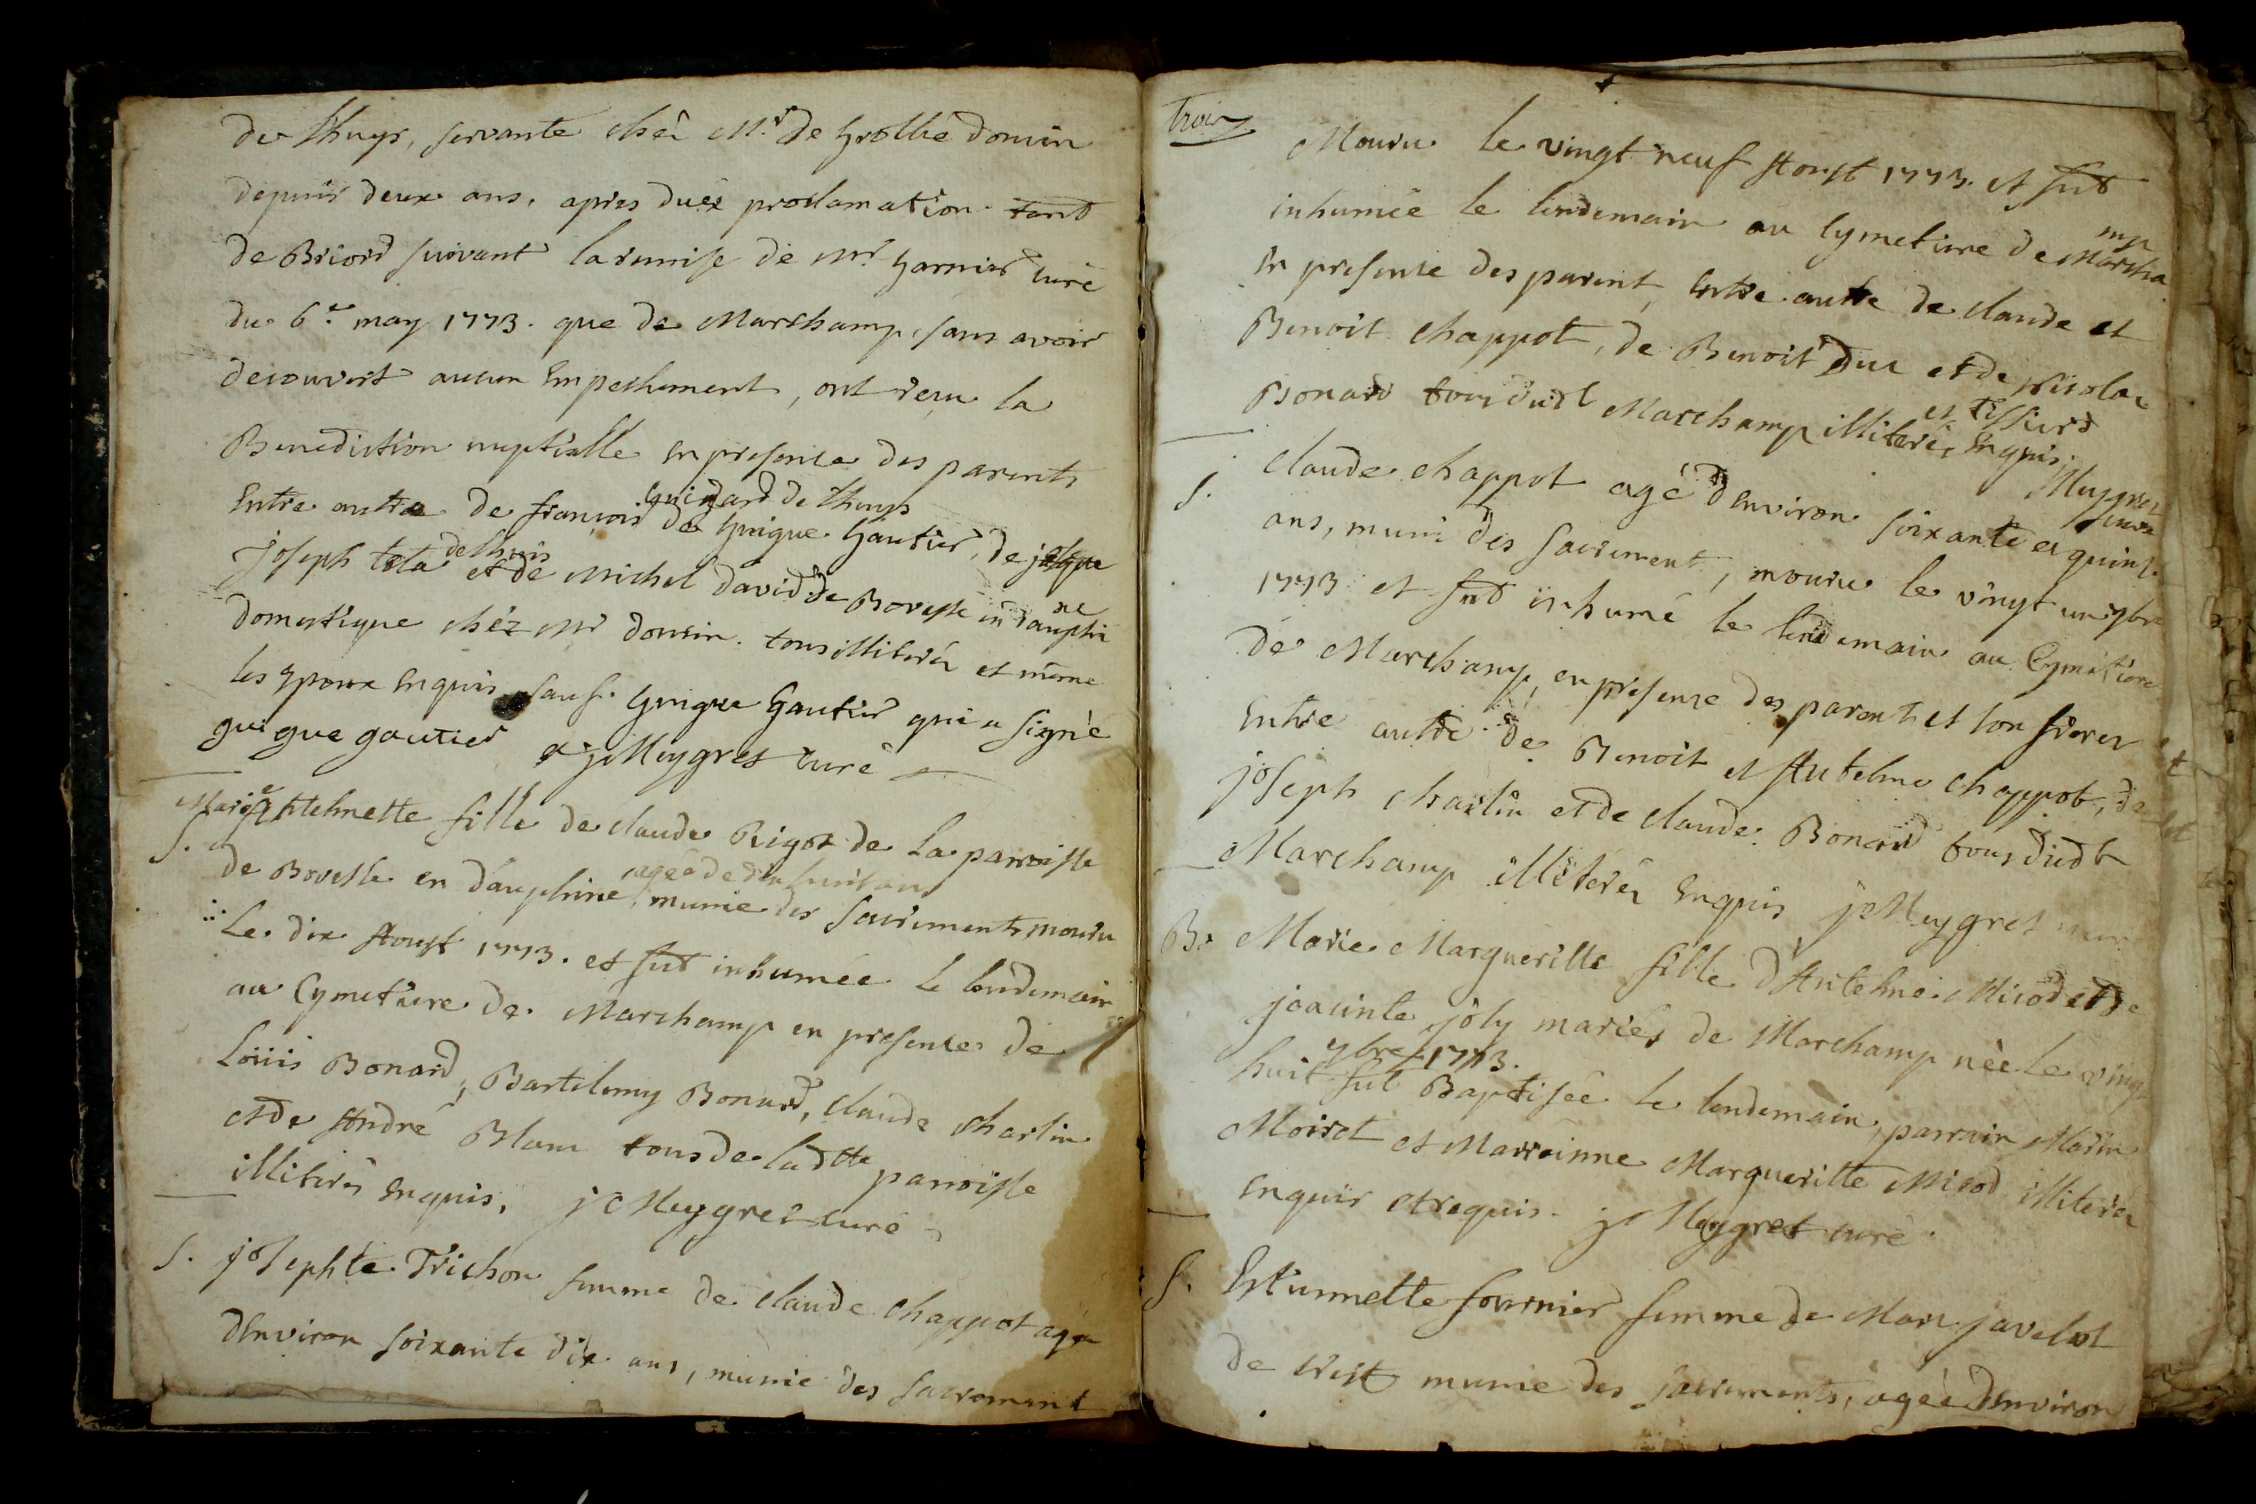 de thuys, servante chéz Mr. de Grollié douvin
depuis deux ans, apres duëx proclamation tant
de Briord suivant la remise de mr. Garnier curé
du 6e may 1773. que de Marchamp, sans avoir
decouvert aucun Empechement, ont reçu la
Benediction nuptialle en presence des parents
Entre autre de françois Guigard de thuys
de Guigue Gautier, de
joseph tela de thuis et de Michel david de Bovesse en dauphiné
domestique chéz mr douvin. tous illiterés et même
les Epoux Enquis sauf Guigue Gautier qui a signé
guigue gautier jc Meygret curé
S. Marie Antelmette fille de claude Rigot de la parroisse
de Bovesse en dauphiné, agée de dix huit ans munie des sacrements mouru
Le dix Aoust 1773. et fut inhumée le lendemain
au Cymetiere de Marchamp en presence de
Loüis Bonard, Bartelemy Bonard, claude charlin
et de André Blanc tous de ladtte parroisse
illiterés Enquis, jc Meygret curé
S. josephte Trichon femme de claude chappot agée
d'Environ soixante dix ans, munie des sacrement
trois
Mouru le vingt neuf Aoust 1773. et fut
inhumée le lendemain au Cymetiere de Marchamp
En presence des parent, Entre autre de claude et
Benoit chappot, de Benoit Duc et de Nicolas
Bonard tous dudt Marchamp illiterés Enquis
Meygret curé
S. claude chappot agé d'Environ soixante et quinze
ans, muni des sacrement, mouru le vingt un 7bre
1773 et fut inhumé le lendemain au Cymetiere
de Marchamp, en presence des parents et son frere
Entre autre de Benoit et Antelme chappot, de
joseph charlin et de claude Bonard tous dudt
Marchamp illiterés Enquis jc Meygret
B. Marie Margueritte fille d'Antelme Micod et de
joacinte joly mariés de Marchamp née le vingt
huit 7bre 1773. fut Baptisée le lendemain, parrain
Moiret et Marreinne Margueritte Micod illiterés
Enquis et requis. jc Meygret curé
S. Estiennette fournier femme de Marc javelot
de crept munie des sacrements, agée d'Environ